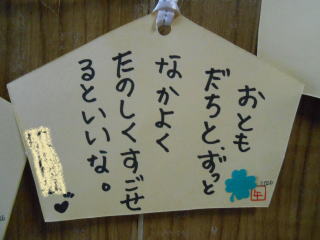 おとも
だちと、ずっと
なかよく
たのしくすごせ
るといいな。